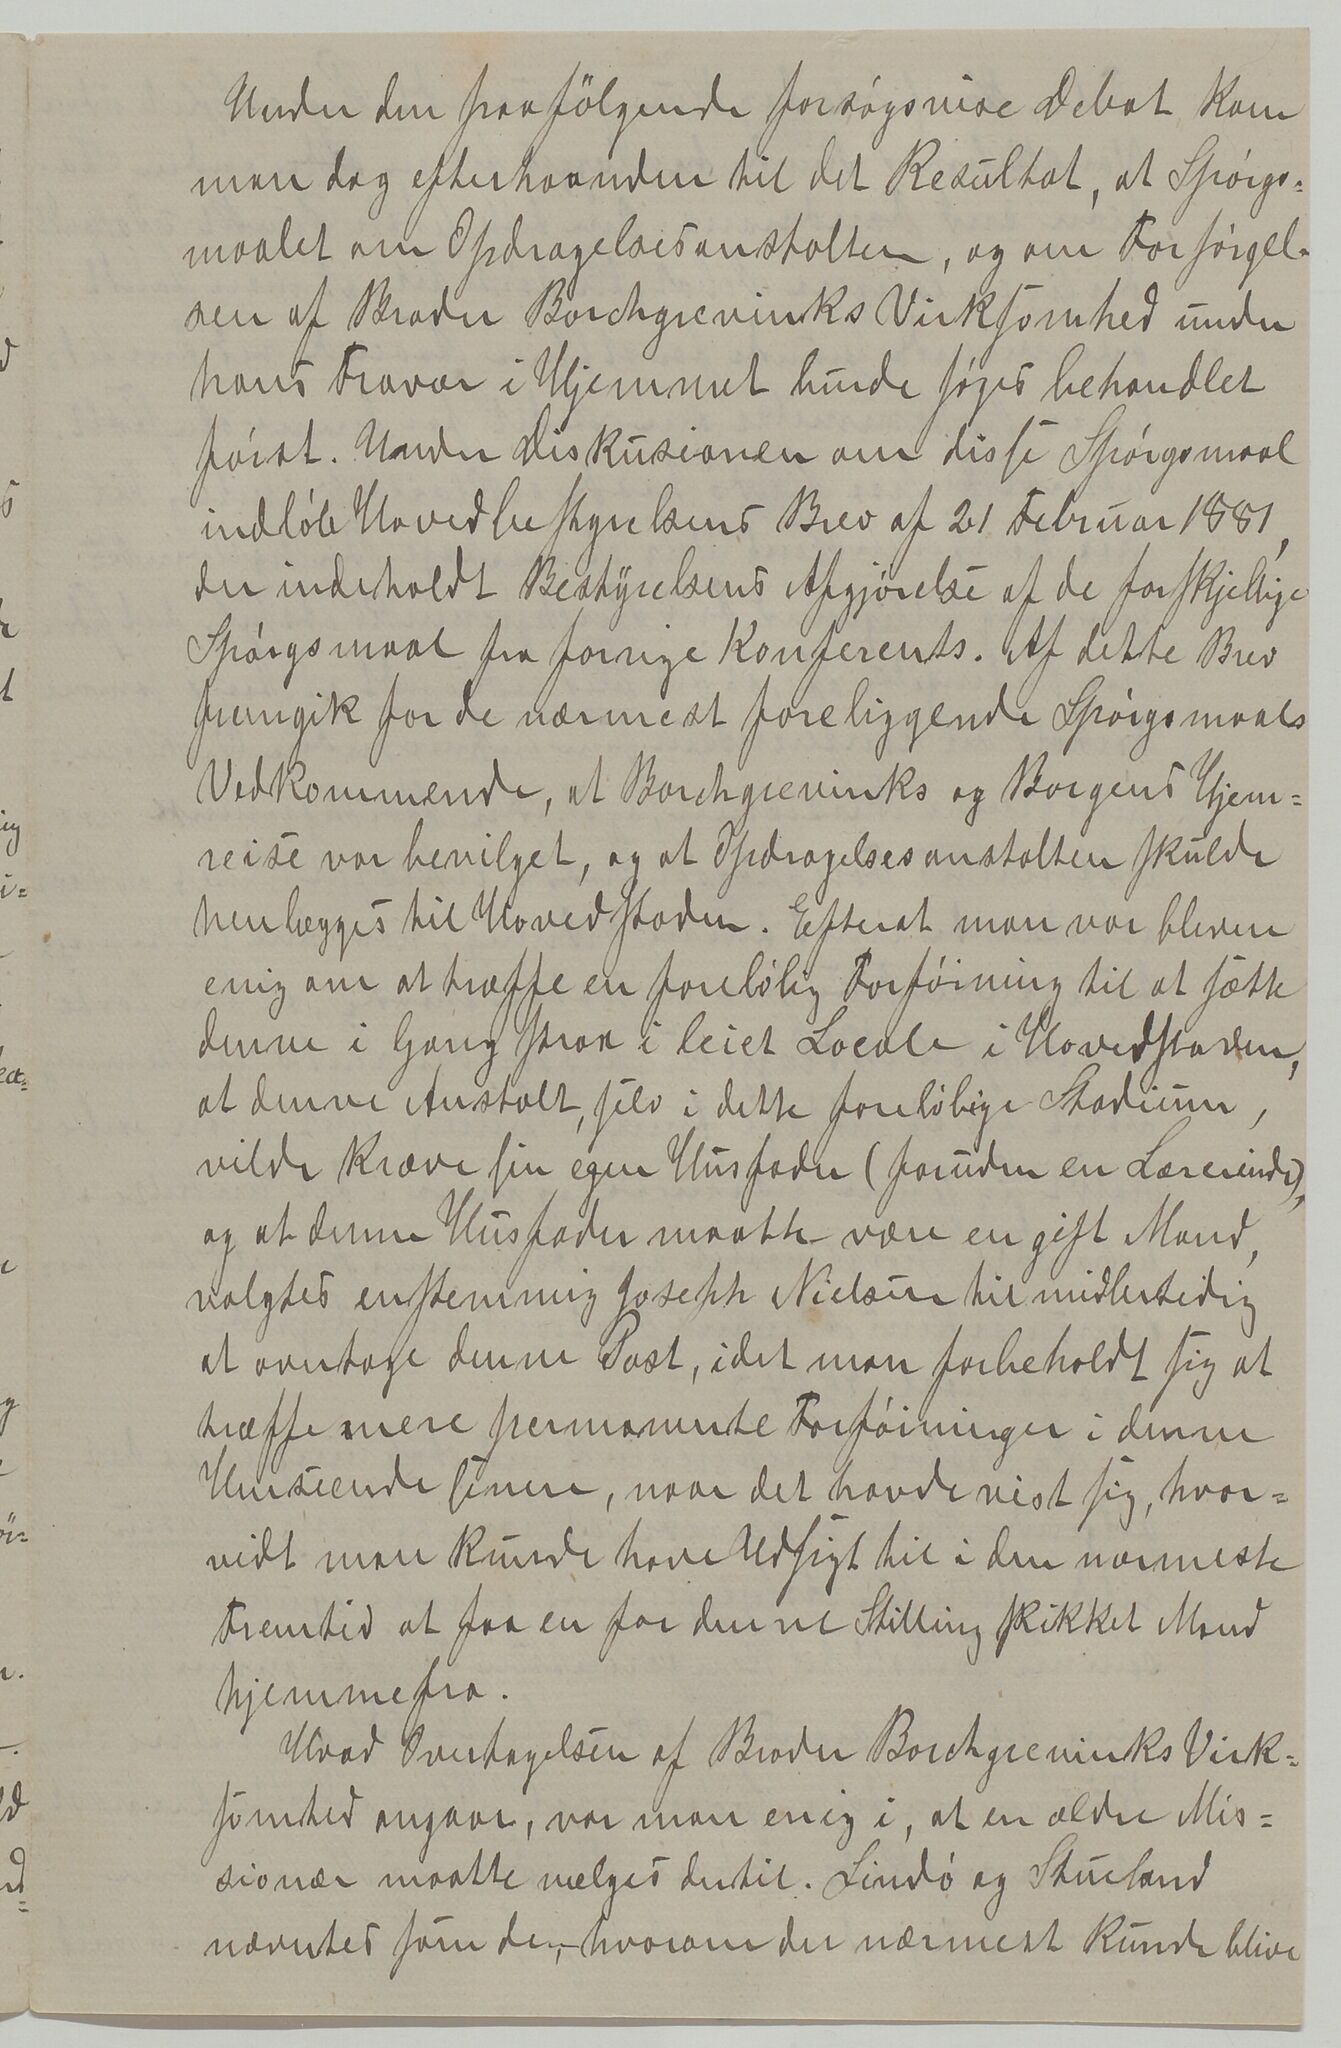 Under den paafölgende forsøgsvise Debat kom
man dog efterhaanden til det Resultat, at Spørgs-
maalet om Opdragelsesanstalten, og om Forsørgel-
sen af Broder Borchgrevinks Virksomhed under
hans Fravær i Hjemmet burde søges behandlet
først. Under Diskusionen om disse Spørgsmaal
indløb Hovedbestyrelsens Brev af 21 Februar 1881,
der indeholdt Bestyrelsens Afgjørelse af de forskjellige
Spørgsmaal fra forrige Konferents. Af dette Brev
fremgik for de nærmest foreliggende Spørgsmaals
Vedkommende, at Borchgrevinks og Borgens Hjem-
reise var bevilget, og at Opdragelsesanstalten skulde
henlægges til Hovedstaden. Efterat man var bleven
enig om at træffe en foreløbig Forføining til at sætte
denne i Gang strax i leiet Locale i Hovedstaden,
at denne Anstalt, selv i dette foreløbige Stadium,
vilde kræve sin egen Husfader (foruden en Lærerinde),
og at denne Husfader maatte være en gift Mand,
valgtes enstemmig Joseph Nielsen til midlertidig
at overtage denne Post, idet man forbeholdt sig at
træffe mere permanente Forføininger i denne
Henseende senere, naar det havde vist sig, hvor-
vidt man kunde have Udsigt til i den nærmeste
Fremtid at faa en for denne Stilling skikket Mand
hjemmefra.
Hvad Overtagelsen af Broder Borchgrevinks Virk-
somhed angaar, var man enig i, at en ældre Mis-
sionær maatte vælges dertil. Lindø og Stueland
nævntes som de, hvorom der nærmest kunde blive